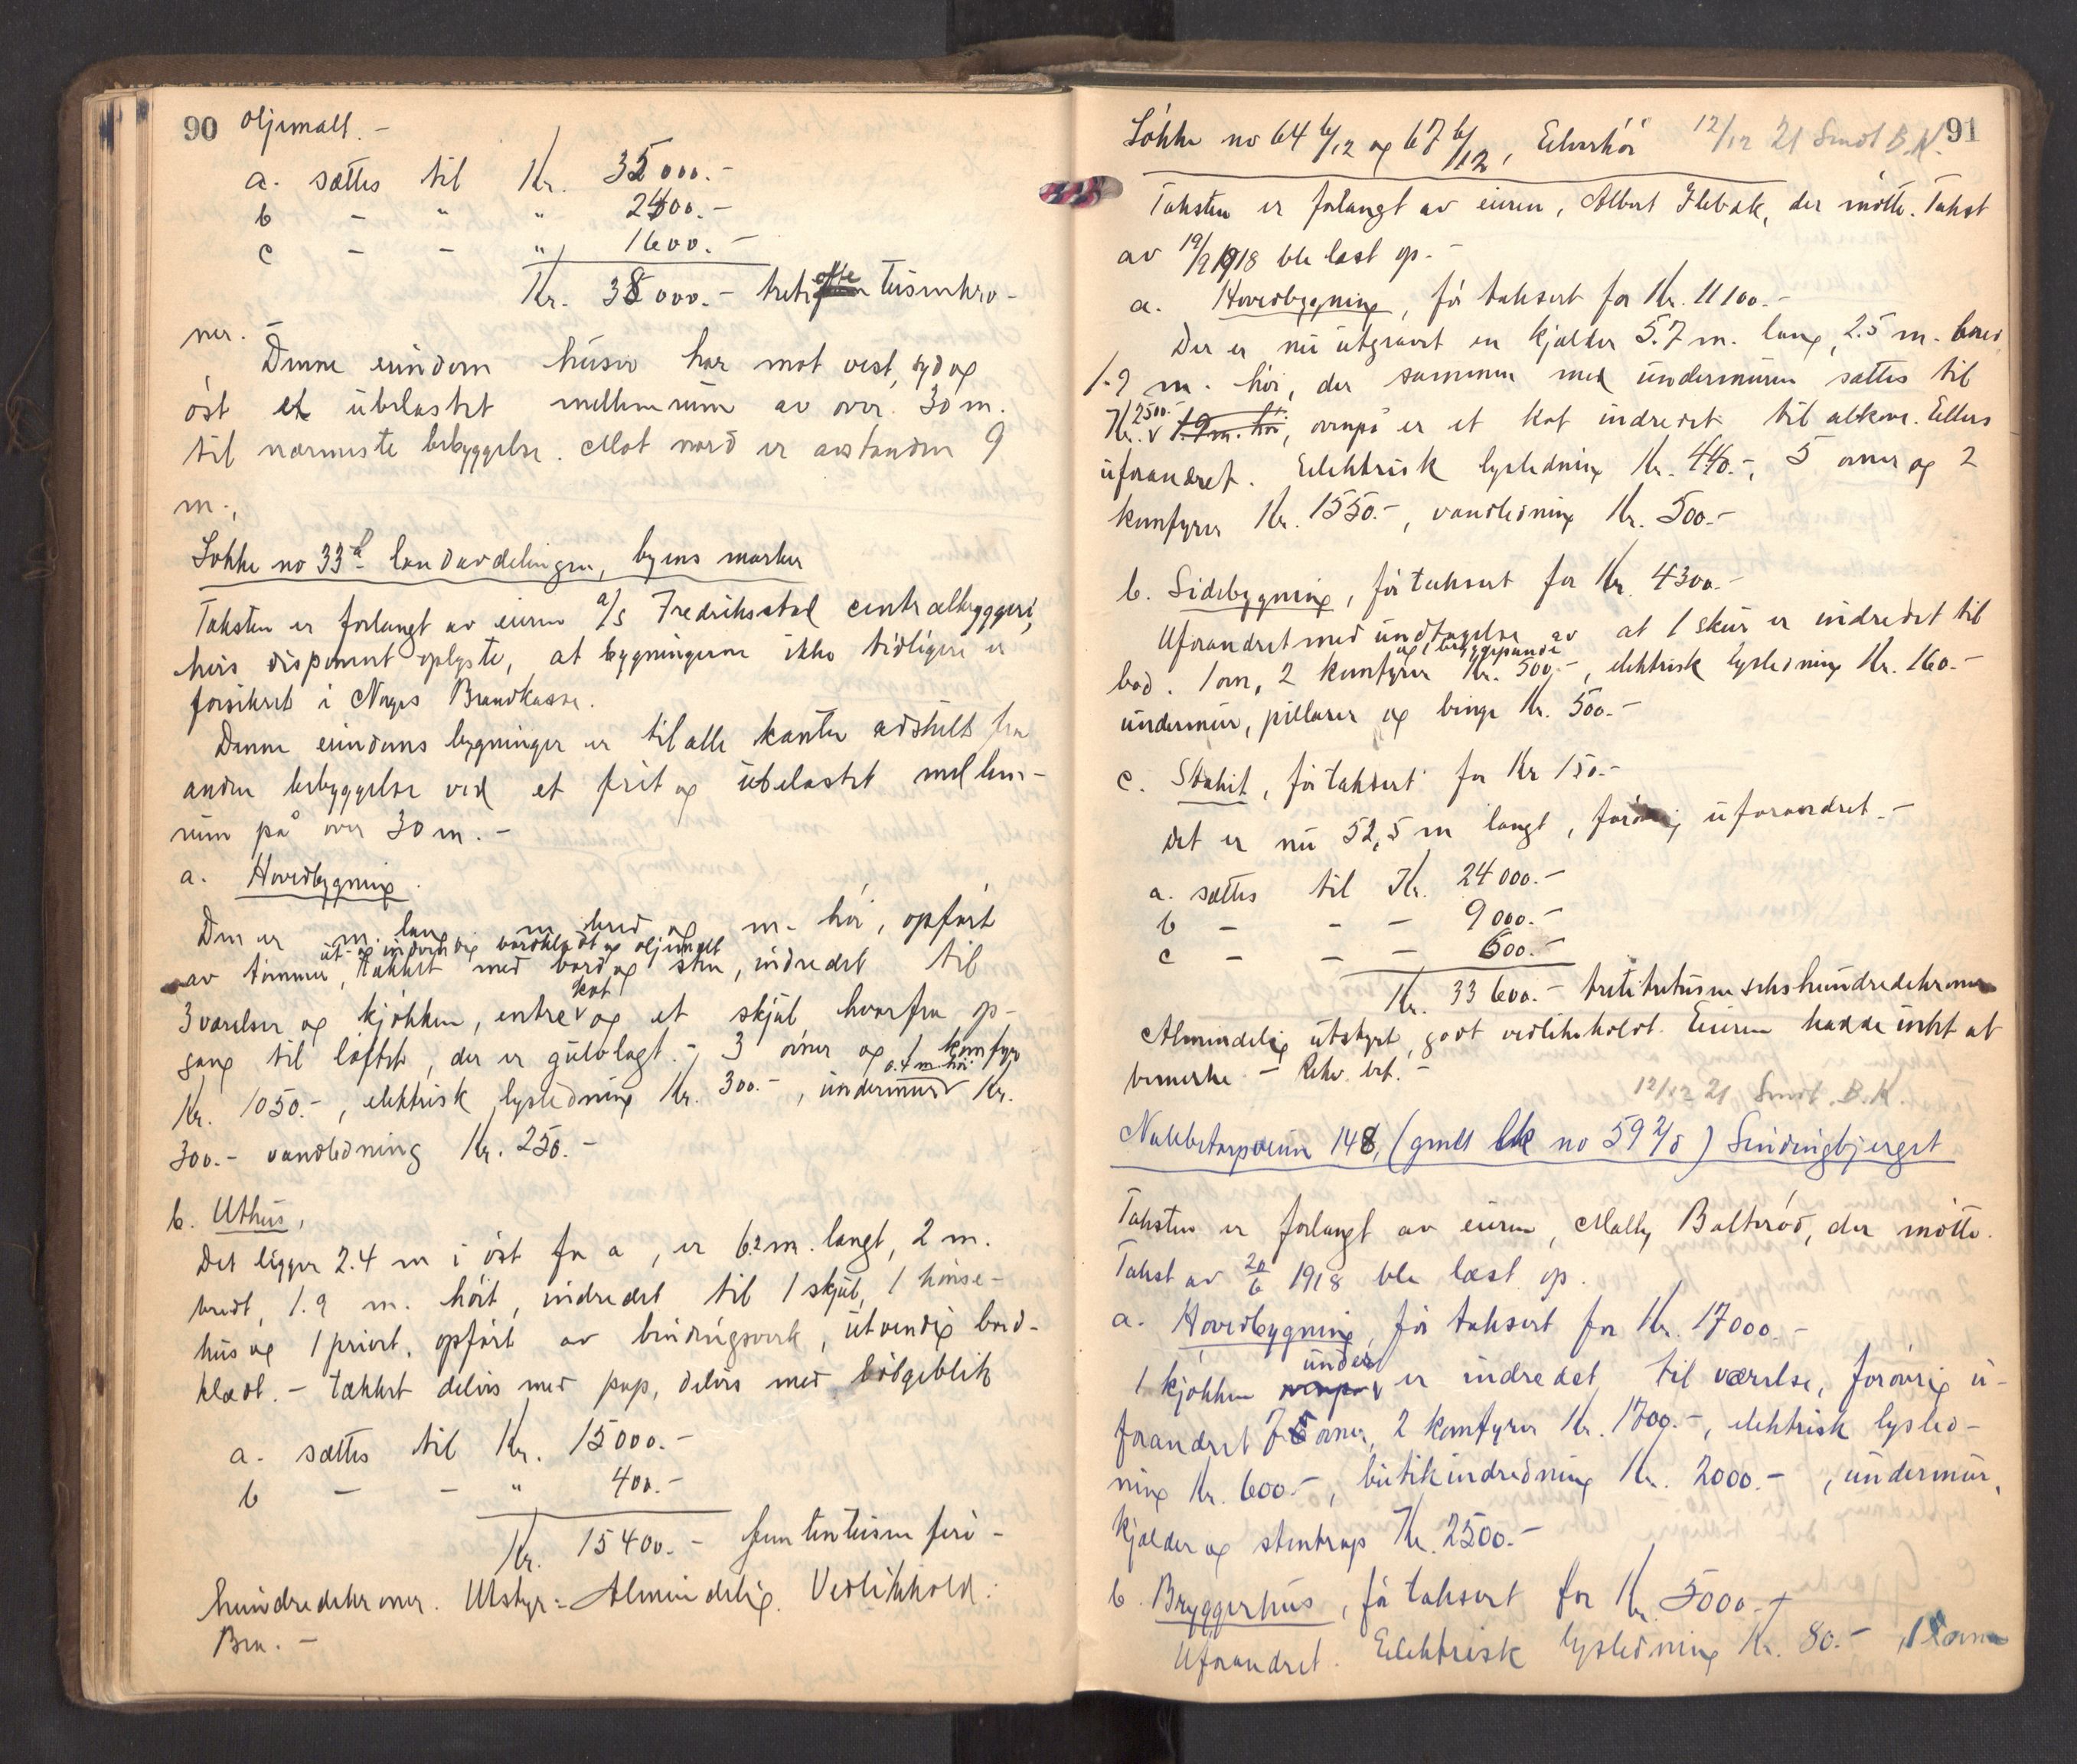 90 oljemalt. -
a. sættes til Kr. 35 000.-
b - " " 2400.-
c - - " 1600.-
Kr. 38 000.- tretiotte tusinkro-
ner.
Denne eiendom husar har mot vest, syd og
öst et ubelastet mellemrum av over 30 m.
til nærmeste bebyggelse. Mot nord er avstanden 9
m.,
Lökke no 33 a landavdelingen, byens marker
Taksten er forlangt av eieren a/s Fredriksstad centralbryggeri,
hvis disponent oplyste, at bygningerne ikke tidligere er
forsikret i Norges Brandkasse.
Denne eiendoms bygninger er til alle kanter adskilt fra
anden bebyggelse ved et frit og ubelastet mellem-
rum på over 30 m. -
a. Hovedbygning.
Den er m. lang m. bred og m. höi, opfört
ut- og indvendig bordklædt og oljemalt
av tömmer, tækket med bord og sten, indredet til
kot
3 værelser og kjökken, entre v og et skjul hvorfra op-
gang til loftet, der er gulvlagt. - 3 ovner og 1 komfyr
0.4 m höi
Kr. 1050.-, elektrisk lysledning Kr. 300.-, undermur v Kr.
300.- vandledning Kr. 250.-
b. Uthus,
Det ligger 2.4 m i öst fra a, er 6.2 m. langt, 2 m.
bredt, 1.9 m. höit, indredet til 1 skjul, 1 hönse-
hus og 1 privet, opfört av bindingsverk, utvendig bord-
klædt. - tækket delvis med pap, delvis med bölgeblik
a. sættes til Kr. 15000.-
b - - " 400.-
Kr. 15400.- femtentusen firi-
hundredekroner. Utstyr: Almindelig. Vedlikehold:
Bra. -
Lökke no 64 6/12 og 67 6/12, Ekeshöi 12/12 21 Sendt B.K. 91
Taksten er forlangt av eieren, Albert Ilebæk, der mötte. Takst
av 19/9 1918 ble læst op. -
a. Hovedbygning, för taksert for Kr. 11100.-
Der er nu utgravet en kjælder 5.7 m. lang, 2.5 m. bred
1.9 m. höi, der sammen med undermuren sættes til
Kr. 2500.- v 1.9 m. höi, ovenpå er et kot indredet til alkove. Ellers
uforandret. Elektrisk lysledning Kr. 440.-, 5 ovner og 2
komfyrer Kr. 1550.-, vandledning Kr. 500.-
b. Sidebygning, för taksert for Kr. 4300.-
Uforandret med undtagelse av at 1 skur er indredet til
og 1 bryggepande
bod. 1 ovn, 2 komfyrer Kr. 500.-, elektrisk lysledning Kr. 160.-
undermur, pillarer og binge Kr. 500.-
c. Stakit, för taksert for Kr 150.-
Det er nu 52,5 m langt, forövrig uforandret. -
a. sættes til Kr. 24 000.-
b - - - 9 000.-
c - - - 600.-
Kr. 33 600.- tretitretusen sekshundredekroner
Almindelig utstyrt, godt vedlikeholdt. Eieren hadde intet at
bemerke. - Rekv. bet. -
12/12 21 Sendt B.K.
Nabbetorpveien 148, (gml lk no 59 2/8) Lindingbjerget
Taksten er forlangt av eieren, Mally Balteröd, der mötte.
Takst av 20/6 1918 ble læst op.
a. Hovedbygning, för taksert for Kr. 17000.-
under
1 kjökken ovenpå v er indredet til værelse, forövrig u-
forandret 7 ovner, 2 komfyrer Kr. 1700.-, elektrisk lysled-
ning Kr. 600.-, butikindredning Kr. 2000.-, undermur,
kjælder og stentrap Kr. 2500.-
b. Bryggerhus, för taksert for Kr. 5000.-
Uforandret. Elektrisk lysledning Kr. 80.-, 1 ovn